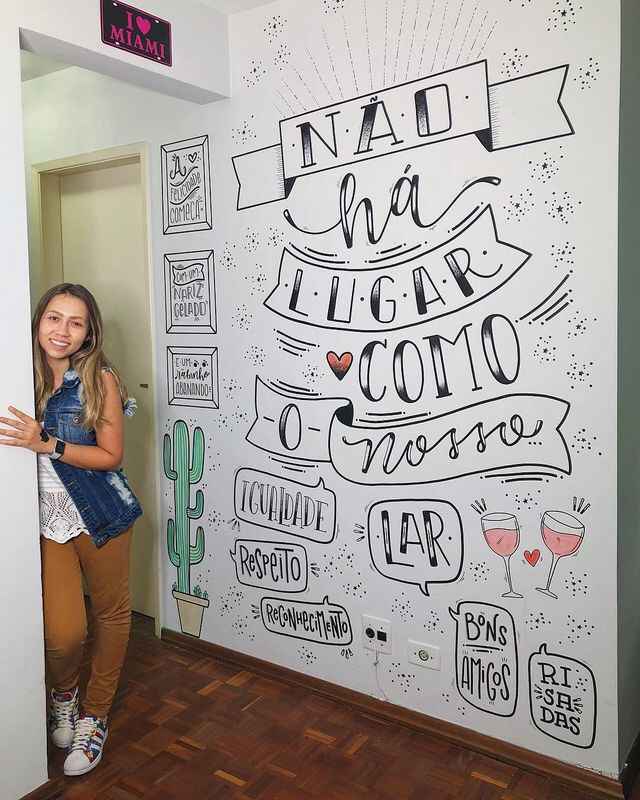 I ♥
MIAMI
NÃO
há
LUGAR
COMO
O nosso
LAR
A
FELICIDADE
COMEÇA
COM UM
NARIZ
GELADO
E UM
rabinho
ABANANDO
IGUALDADE
RESPEITO
RECONHECIMENTO
BONS
AMIGOS
RI
SA
DAS